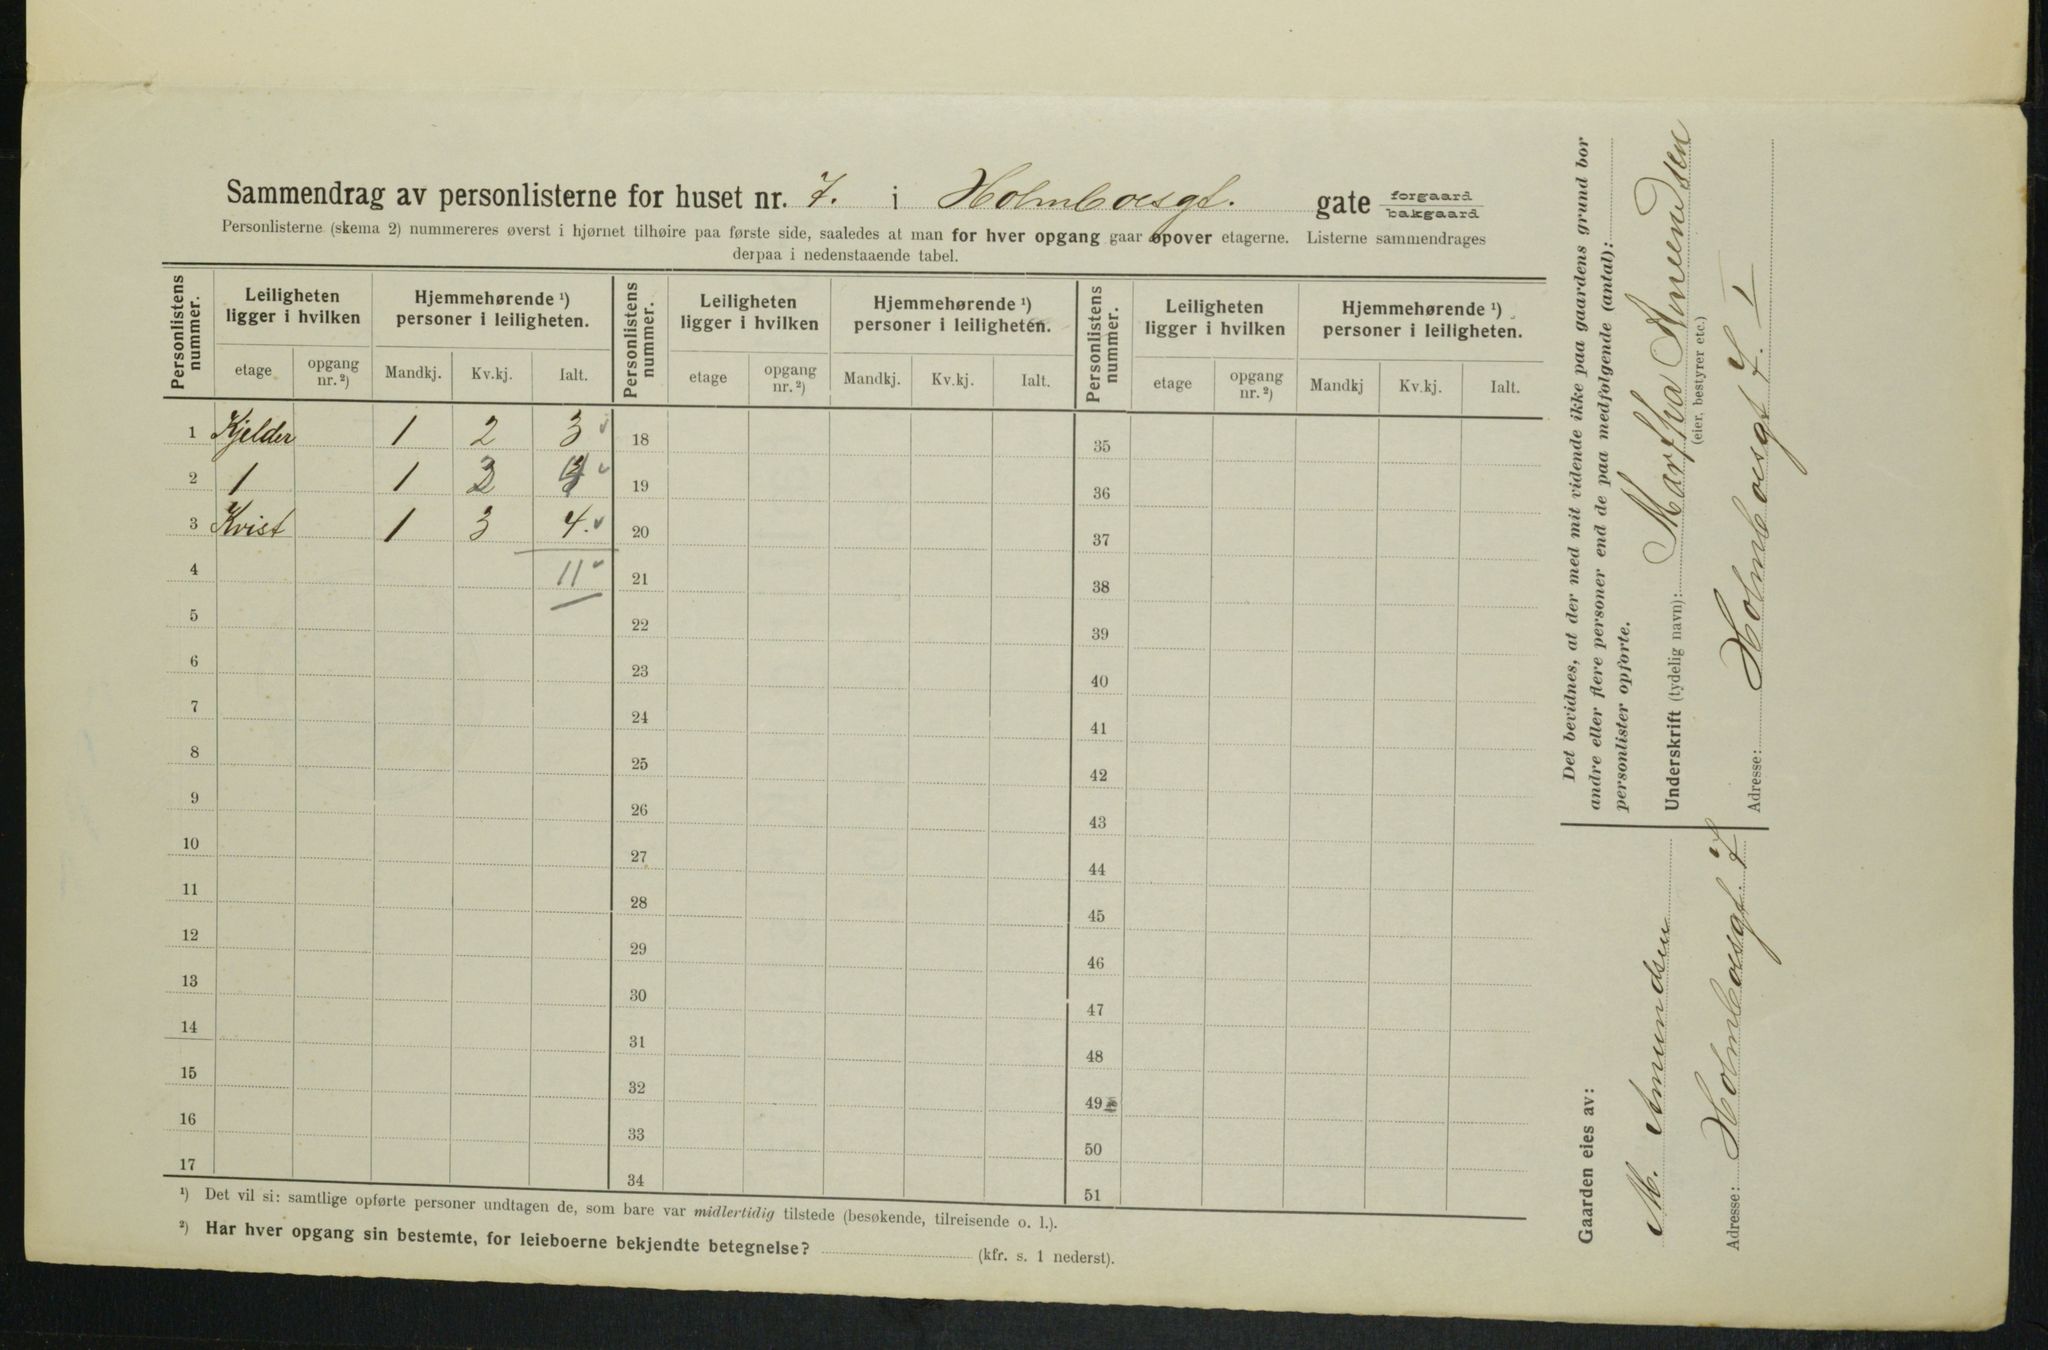 Sammendrag av personlisterne for huset nr. 7. i Holmboesgt. gate forgaard bakgaard
Personlisterne (skema 2) nummereres øverst i hjørnet tilhøire paa første side, saaledes at man for hver opgang gaar opover etagerne. Listerne sammendrages
derpaa i nedenstaaende tabel.
Personlistens nummer. Leiligheten ligger i hvilken Hjemmehørende ¹) personer i leiligheten. Personlistens nummer. Leiligheten ligger i hvilken Hjemmehørende ¹) personer i leiligheten. Personlistens nummer. Leiligheten ligger i hvilken Hjemmehørende ¹) personer i leiligheten.
etage opgang nr. ²) Mandkj. Kv.kj. Ialt. etage opgang nr. ²) Mandkj. Kv.kj. Ialt. etage opgang nr. ²) Mandkj Kv.kj. Ialt.
1 Kjelder 1 2 3 18 35
2 1 1 19 36
3 Kvist 1 3 4. 20 37
4 11 21 38
5 22 39
6 23 40
7 24 41
8 25 42
9 26 43
10 27 44
11 28 45
12 29 46
13 30 47
14 31 48
15 32 49
16 33 50
17 34 51
¹) Det vil si: samtlige opførte personer undtagen de, som bare var midlertidig tilstede (besøkende, tilreisende o. l.).
²) Har hver opgang sin bestemte, for leieboerne bekjendte betegnelse? (kfr. s. 1 nederst).
Det bevidnes, at der med mit vidende ikke paa gaardens grund bor
andre eller flere personer end de paa medfølgende (antal):
personlister opførte.
Underskrift (tydelig navn): Martha Amundsen
(eier, bestyrer etc.)
Adresse: Holmboesgt 7. I
Gaarden eies av:
M. Amundsen
Adresse: Holmboesgt. 7